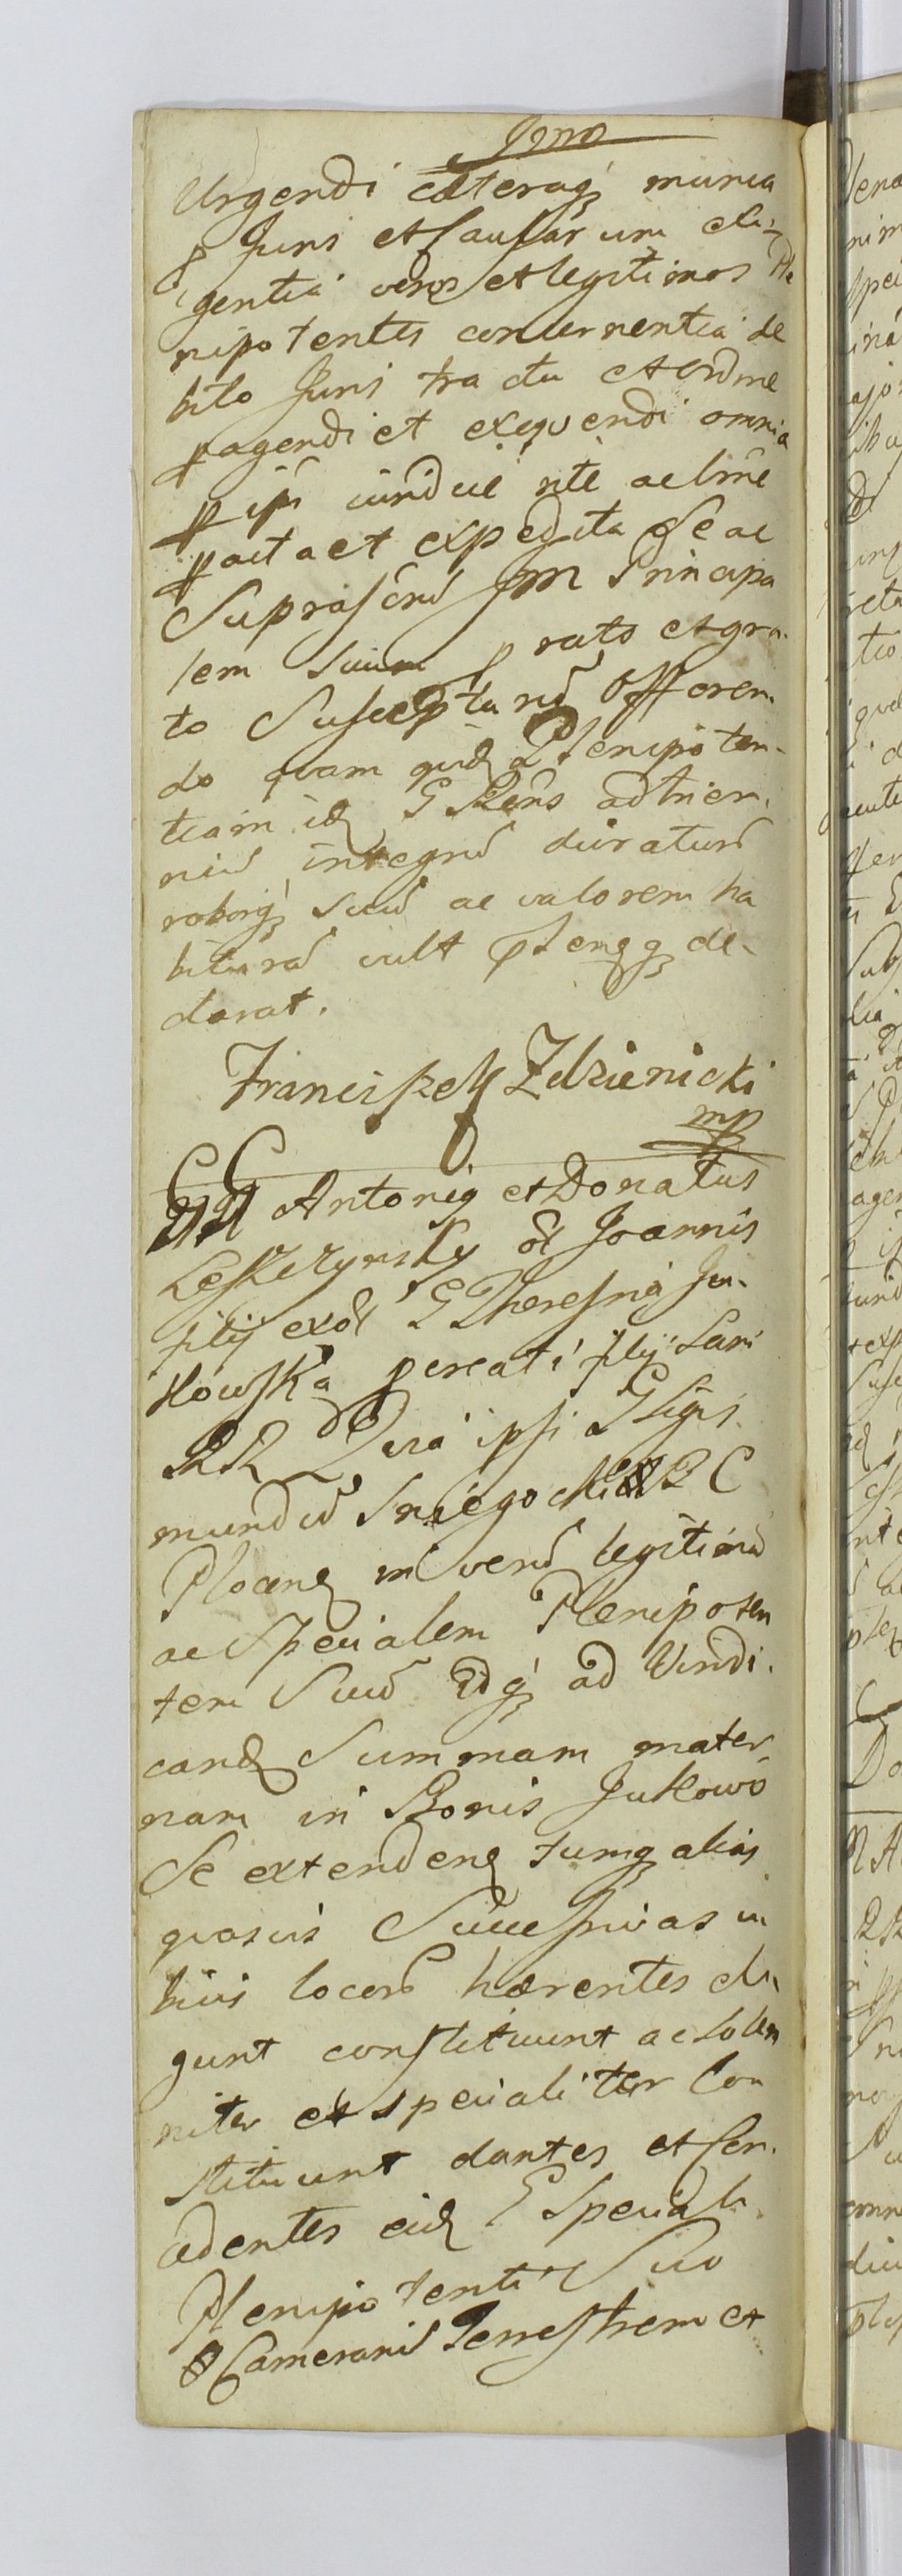 Urgendi cæteraq munia
p Juris et Causarum exi-
gentia veros et legitimos Ple
nipotentes concernentia de
bito Juris tractu et ordine
pagendi et exeqvendi omnia
p ipm juridice rite ac ltme
pacta et expedita Se ac
Suprascrm Gm Principa
lem Suum p rato et gra-
to Suscepturum Offeren-
do qvam quid Plenipoten-
tiam id G Recns ad trien-
nium integrum duraturam
roborq Suum ac valorem ha
bituram vult pteng de-
clarat.
Franciszek Zdzienicki
mp
GG Antonig et Donatus
Leszczynscy ol Joannis
filij ex ol G Theresia Ju-
tkowska pcreati filij Sani
RR Qvia ipsi G Sigis
mundum Sniegocki B C
Plocens in verum legitimum
ac Specialem Plenipoten
tem Suum Idq ad Vindi-
cand Summam mater
nam in Bonis Jutkowo
Se extendeng tumq alias
qvasvis Successivas in
hivis locorum hærentes eli
gunt constituunt ac solen
niter et specialiter con
stituunt dantes et Con-
cedentes eid G Speciali
Plenipotenti Suo
Camerarium Terrestrem et